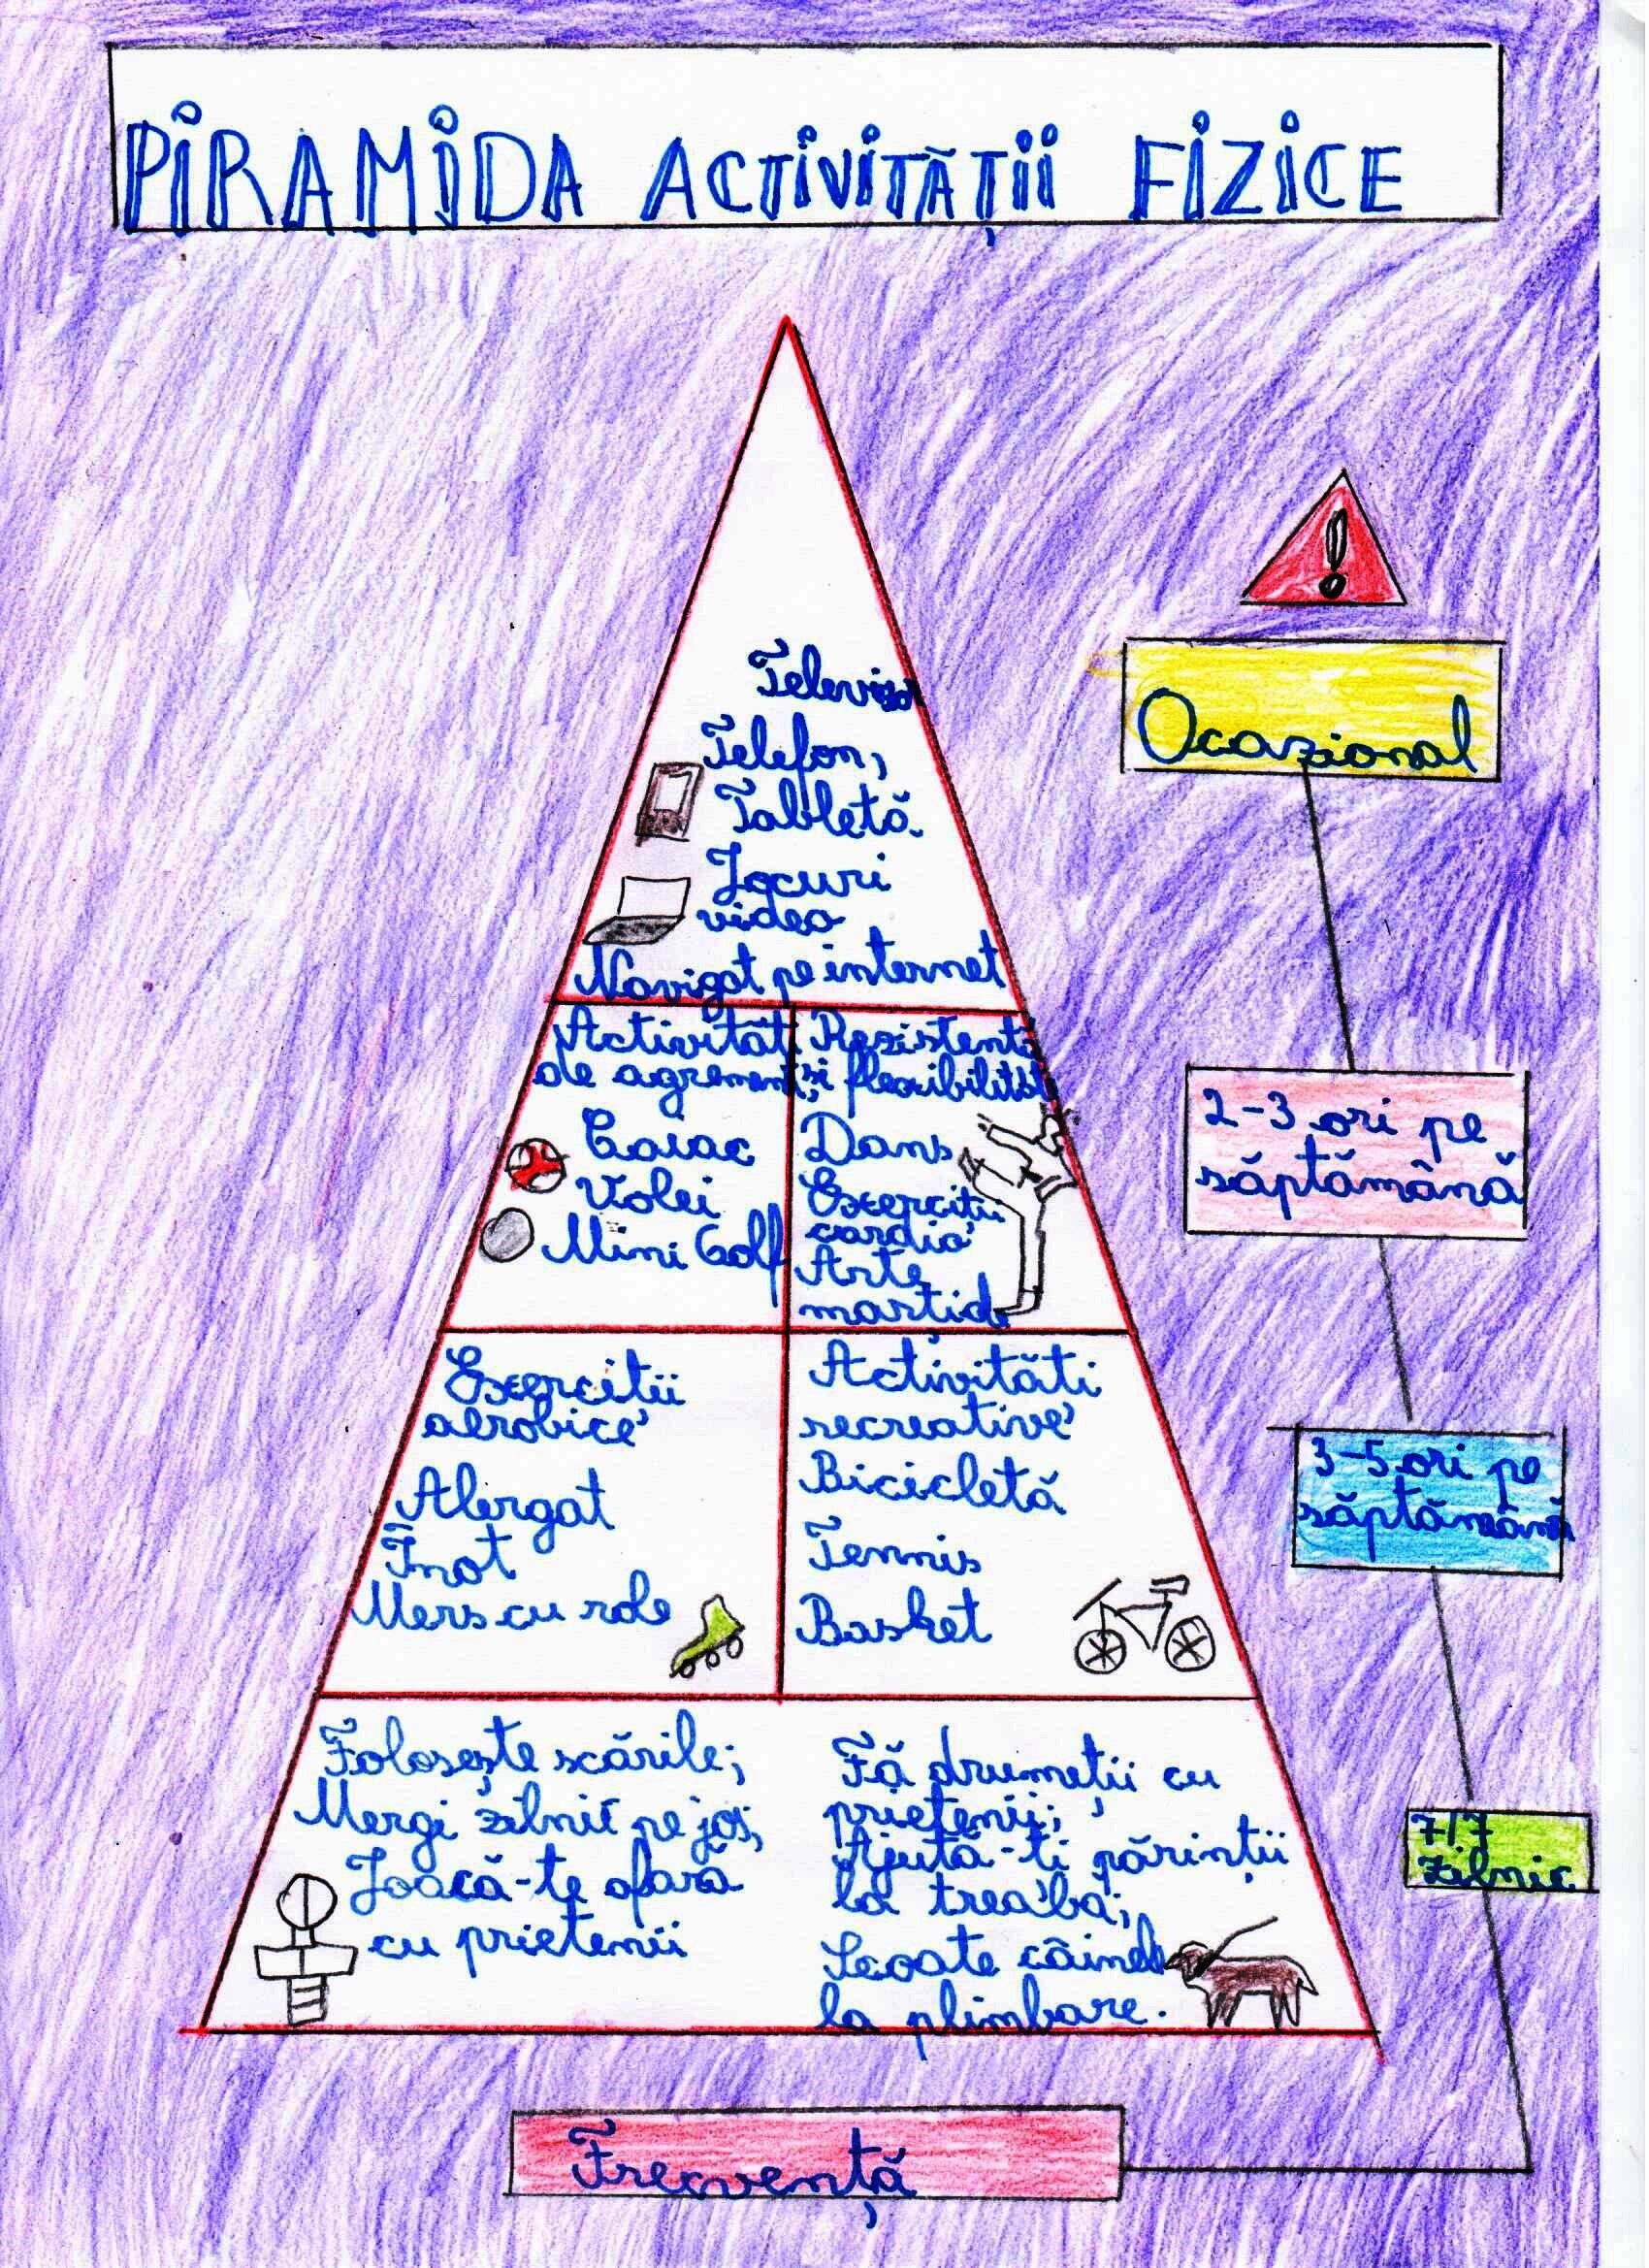 PIRAMIDA ACTIVITĂȚII FIZICE
!
Televizor
Telefon,
Tabletă
Jocuri
video
Navigat pe internet
Ocazional
Activităti
de agrement
Caiac
Volei
Mini Golf
Rezistentă
și flexibilitate
Dans
Exerciții
cardio
Arte
martiale
2-3 ori pe
săptămână
Exercitii
aerobice
Alergat
Înot
Mers cu role
Activităti
recreative
Bicicletă
Tennis
Basket
3-5 ori pe
săptămână
Folosește scările;
Mergi zilnic pe jos;
Joacă-te afară
cu prietenii
Fă drumeții cu
prietenii;
Ajută-ti părinții
la treabă;
Scoate câinele
la plimbare.
7/7
Zilnic
Frecvență